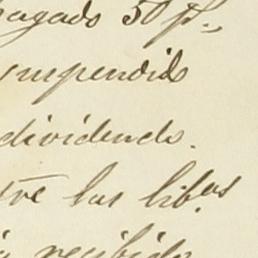 pagado 50 p.,
suspendido
dividendo.
tre las lib.as
recibido